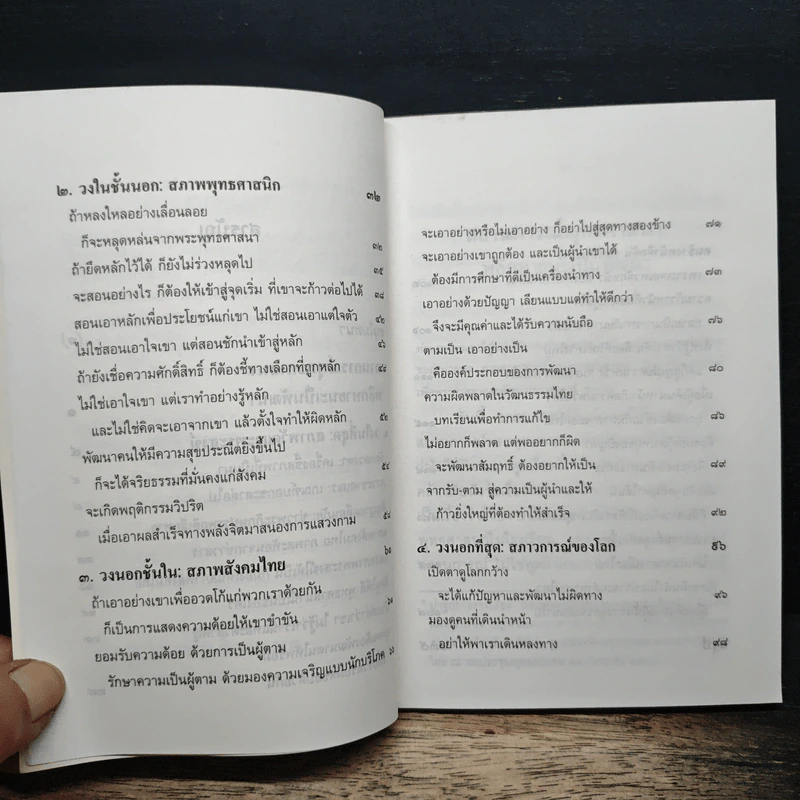 ๒. วงในชั้นนอก: สภาพพุทธศาสนิก ๓๒
ถ้าหลงใหลอย่างเลื่อนลอย
ก็จะหลุดหล่นจากพระพุทธศาสนา ๓๒
ถ้ายึดหลักไว้ได้ ก็ยังไม่ร่วงหลุดไป ๓๕
จะสอนอย่างไร ก็ต้องให้เข้าสู่จุดเริ่ม ที่เขาจะก้าวต่อไปได้ ๓๘
สอนเอาหลักเพื่อประโยชน์แก่เขา ไม่ใช่สอนเอาแต่ใจตัว ๔๒
ไม่ใช่สอนเอาใจเขา แต่สอนชักนำเข้าสู่หลัก
ถ้ายังเชื่อความศักดิ์สิทธิ์ ก็ต้องชี้ทางเลือกที่ถูกหลัก
ไม่ใช่เอาใจเขา แต่เราทำอย่างรู้หลัก
และไม่ใช่คิดจะเอาจากเขา แล้วตั้งใจทำให้ผิดหลัก ๕๒
พัฒนาคนให้มีความสุขประณีตยิ่งขึ้นไป
ก็จะได้จริยธรรมที่มั่นคงแก่สังคม
จะเกิดพฤติกรรมวิปริต
เมื่อเอาผลสำเร็จทางพลังจิตมาสนองการแสวงกาม
๓. วงนอกชั้นใน: สภาพสังคมไทย ๖๑
ถ้าเอาอย่างเขาเพื่ออวดโก้แก่พวกเราด้วยกัน
ก็เป็นการแสดงความด้อยให้เขาขำขัน ๖๑
ยอมรับความด้อย ด้วยการเป็นผู้ตาม
รักษาความเป็นผู้ตาม ด้วยมองความเจริญแบบนักบริโภค
จะเอาอย่างหรือไม่เอาอย่าง ก็อย่าไปสู่สุดทางสองข้าง ๗๑
จะเอาอย่างเขาถูกต้อง และเป็นผู้นำเขาได้
ต้องมีการศึกษาที่ดีเป็นเครื่องนำทาง ๗๓
เอาอย่างด้วยปัญญา เลียนแบบแต่ทำให้ดีกว่า
จึงจะมีคุณค่าและได้รับความนับถือ ๗๖
ตามเป็น เอาอย่างเป็น
คือองค์ประกอบของการพัฒนา ๘๐
ความผิดพลาดในวัฒนธรรมไทย
บทเรียนเพื่อทำการแก้ไข ๘๖
ไม่อยากก็พลาด แต่พออยากก็ผิด
จะพัฒนาสัมฤทธิ์ ต้องอยากให้เป็น ๘๙
จากรับ-ตาม สู่ความเป็นผู้นำและให้
ก้าวยิ่งใหญ่ที่ต้องทำให้สำเร็จ ๙๒
๔. วงนอกที่สุด: สภาวการณ์ของโลก ๙๖
เปิดตาดูโลกกว้าง
จะได้แก้ปัญหาและพัฒนาไม่ผิดทาง ๙๖
มองดูคนที่เดินนำหน้า
อย่าให้พาเราเดินหลงทาง ๙๘